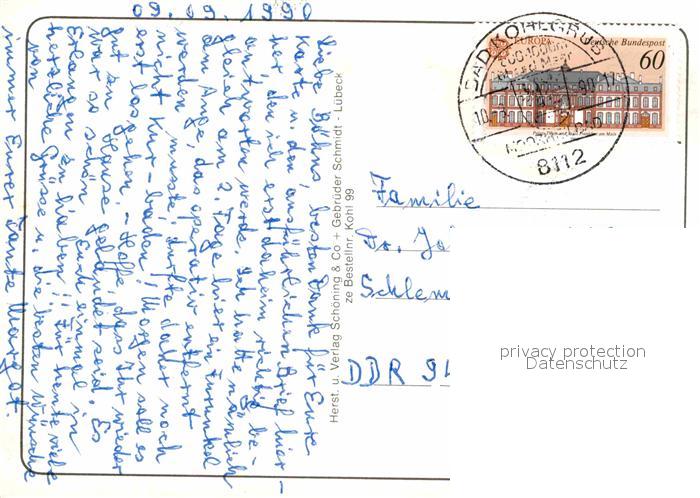 09.09.1990
Liebe Böhns, besten Dank für Eure
Karte u. den ausführlichen Brief hier-
her, den ich erst daheim richtig be-
antworten werde. Ich hatte nämlich
gleich am 2. Tage hier ein Furunkel
am Auge, das operativ entfernt
werden musste, durfte daher noch
nicht Kur-baden! Morgen soll es
erst losgehen. - Hoffe, dass Ihr wieder
gut zu Hause gelandet seid. Es
war so schön Euch einmal in
Erlangen zu haben!! Für heute viele
herzliche Grüsse u. die besten Wünsche
von
immer Eurer Tante Margot.
Herst. u. Verlag Schöning & Co + Gebrüder Schmidt - Lübeck
ze Bestellnr. Kohl 99
EUROPA
Deutsche Bundespost
60
BAD KOHLGRUB
10. -90-17
8112
Familie
Dr. Jo
Schlem
DDR 94
privacy protection
Datenschutz